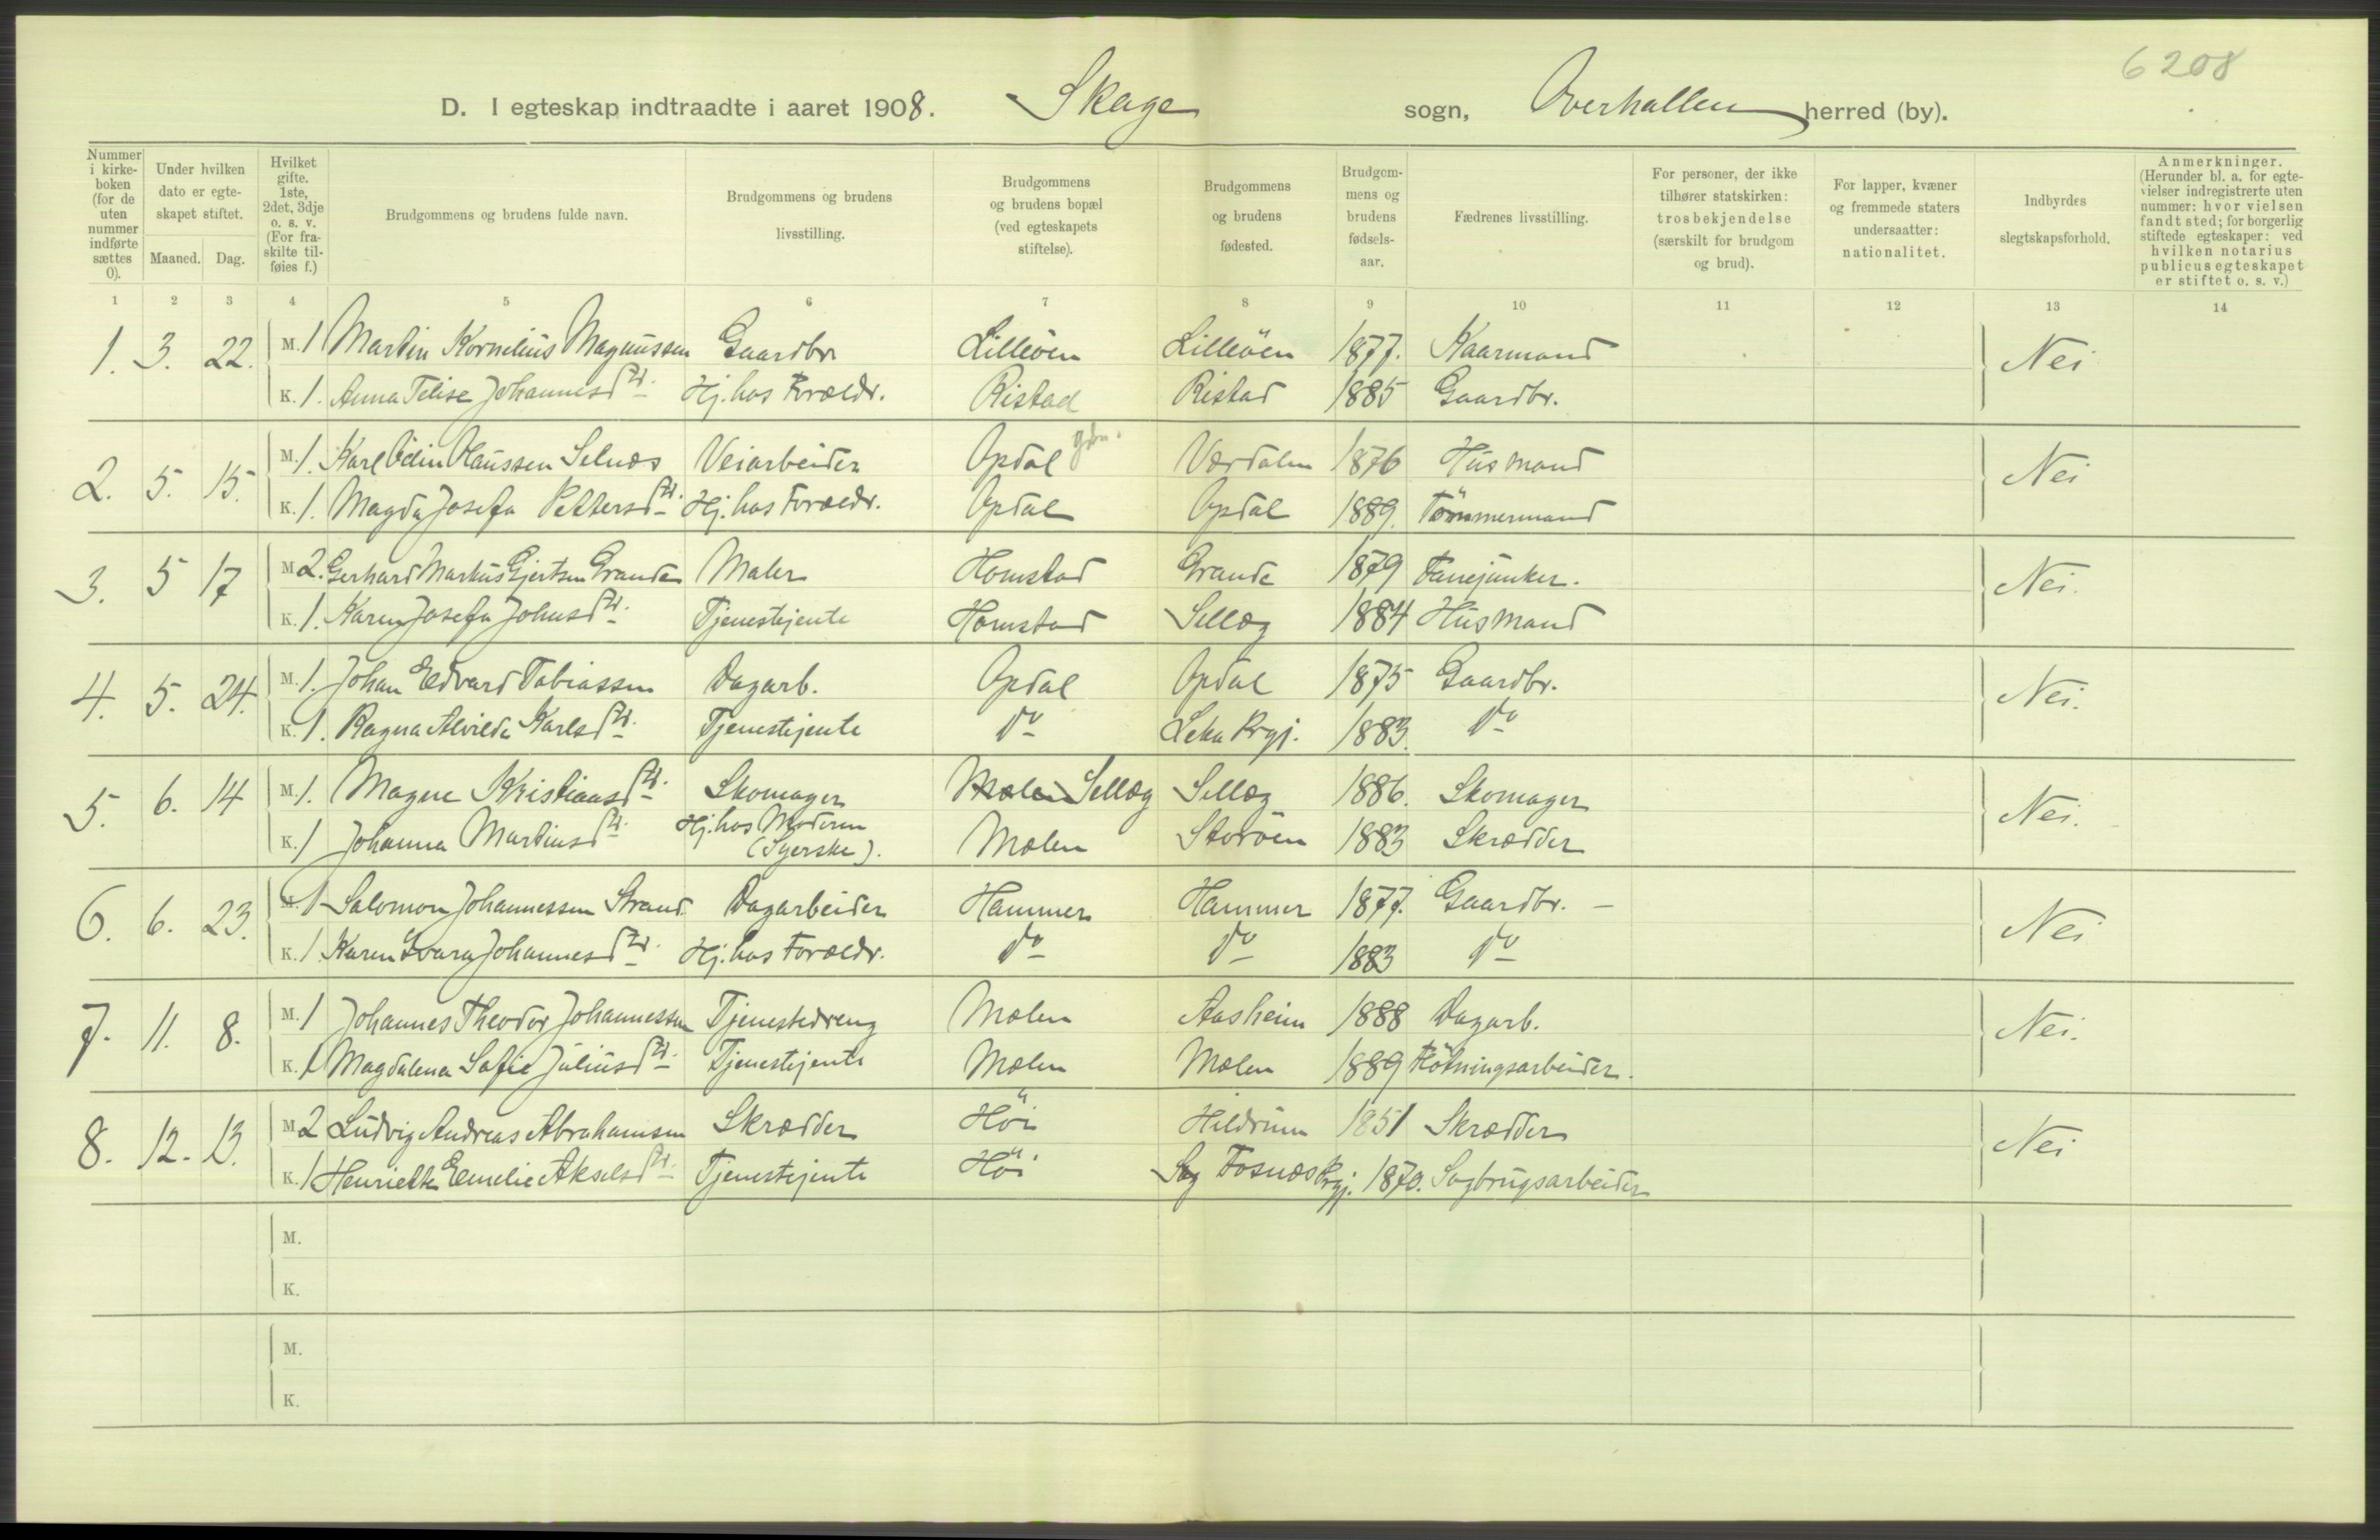 6208
D. I egteskap indtraadte i aaret 1908. Skage sogn, Overhallen herred (by).
Nummer i kirke-boken (for de uten nummer indførte sættes 0).
Under hvilken dato er egte-skapet stiftet.
Maaned. Dag.
Hvilket gifte. 1ste, 2det, 3dje o. s. v. (For fra-skilte til-føies f.)
Brudgommens og brudens fulde navn.
Brudgommens og brudens livsstilling.
Brudgommens og brudens bopæl (ved egteskapets stiftelse).
Brudgommens og brudens fødested.
Brudgom-mens og brudens fødsels-aar.
Fædrenes livsstilling.
For personer, der ikke tilhører statskirken: trosbekjendelse (særskilt for brudgom og brud).
For lapper, kvæner og fremmede staters undersaatter: nationalitet.
Indbyrdes slegtskapsforhold.
Anmerkninger. (Herunder bl. a. for egte-vielser indregistrerte uten nummer: hvor vielsen fandt sted; for borgerlig stiftede egteskaper: ved hvilken notarius publicus egteskapet er stiftet o. s. v.)
1 2 3 4 5 6 7 8 9 10 11 12 13 14
1. 3. 22. M. 1 Martin Kornelius Magnussen Gaardbr Lilleöen Lilleöen 1877. Kaarmand Nei
K. 1. Anna Telise Johannesdtr. Hj. hos Forældr. Ristad Ristad 1885 Gaardbr.
2. 5. 15. M. 1. Karl Odin Olaussen Selnæs Veiarbeider Opdal gbr. Værdalen 1876 Husmand Nei
K. 1. Magda Josefa Pettersdtr. Hj. hos Forældr. Opdal Opdal 1889. Tömmermand
3. 5 17 M 2. Gerhard Markus Gjertsen Grande Maler Homstad Grande 1879 Fanejunker. Nei.
K. 1. Karen Josefa Johnsdtr. Tjenestejente Homstad Sellæg 1884 Husmand
4. 5. 24. M. 1. Johan Edvard Tobiassen Dagarb. Opdal Opdal 1875 Gaardbr. Nei.
K. 1. Ragna Alvilde Karlsdtr. Tjenestejente do Leka Prgj. 1883. do
5. 6. 14 M. 1. Magne Kristiansdtr. Skomager Mælen Sellæg Sellæg 1886. Skomager Nei.
K. 1 Johanna Martinsdtr. Hj. hos Moderen (Syerske). Mælen Storöen 1883 Skrædder
6. 6. 23. M. 1 Salomon Johannessen Strand Dagarbeider Hammer Hammer 1877. Gaardbr. – Nei
K. 1. Karen Johannesdtr. Hj. hos Forældr. do do 1883 do
7. 11. 8. M. 1 Johannes Theodor Johannessen Tjenestedreng Mælen Aasheim 1888 Dagarb. Nei.
K. 1 Magdalena Sofie Juliusdtr. Tjenestejente Mælen Mælen 1889 Flötningsarbeider.
8. 12. 13. M 2 Ludvig Andreas Abrahamsen Skrædder Höi Hildrum 1851 Skrædder Nei
K. 1 Henriette Emelie Akselsdtr. Tjenestejente Höi Sag Fosnæs Prgj. 1870. Sagbrugsarbeider
M.
K.
M.
K.